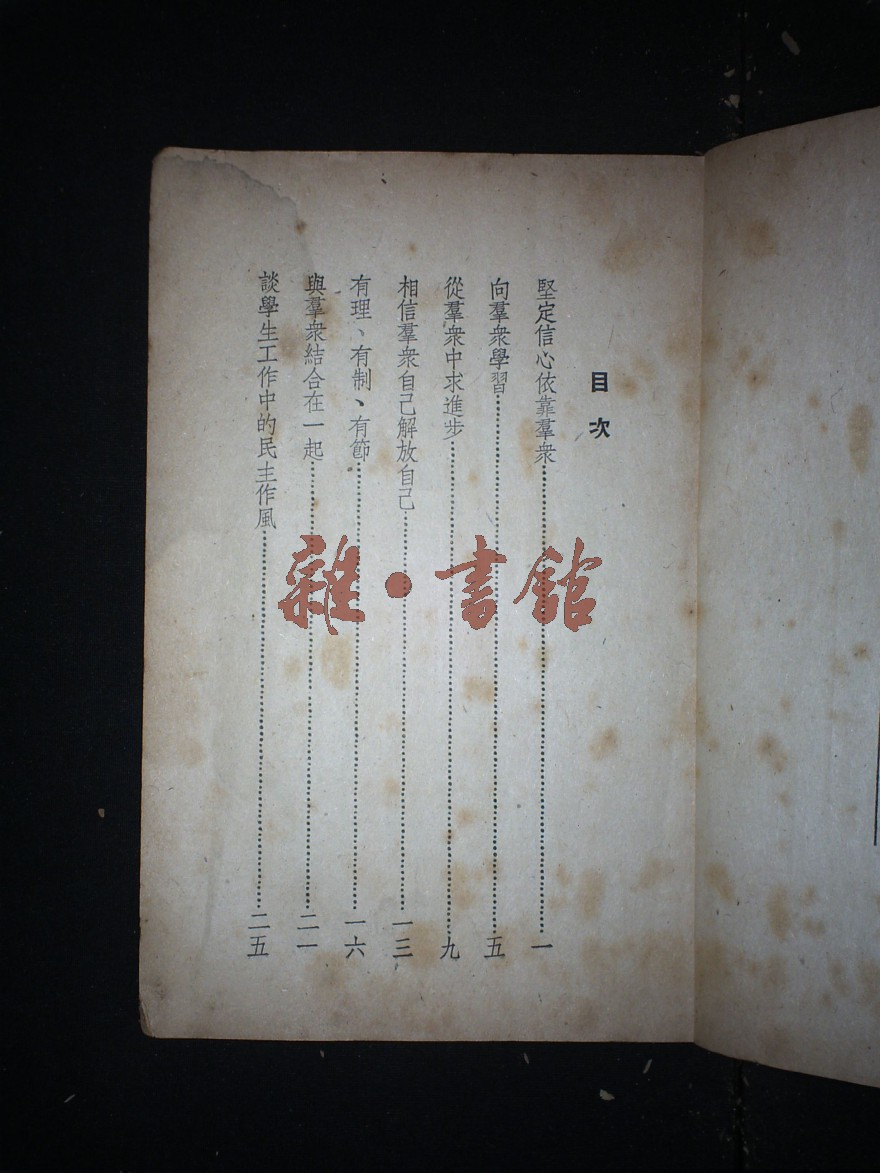 目次
堅定信心依靠羣衆………一
向羣衆學習………五
從羣衆中求進步………九
相信羣衆自己解放自己………一三
有理、有制、有節………一六
與羣衆結合在一起………二一
談學生工作中的民主作風………二五
雜·書館